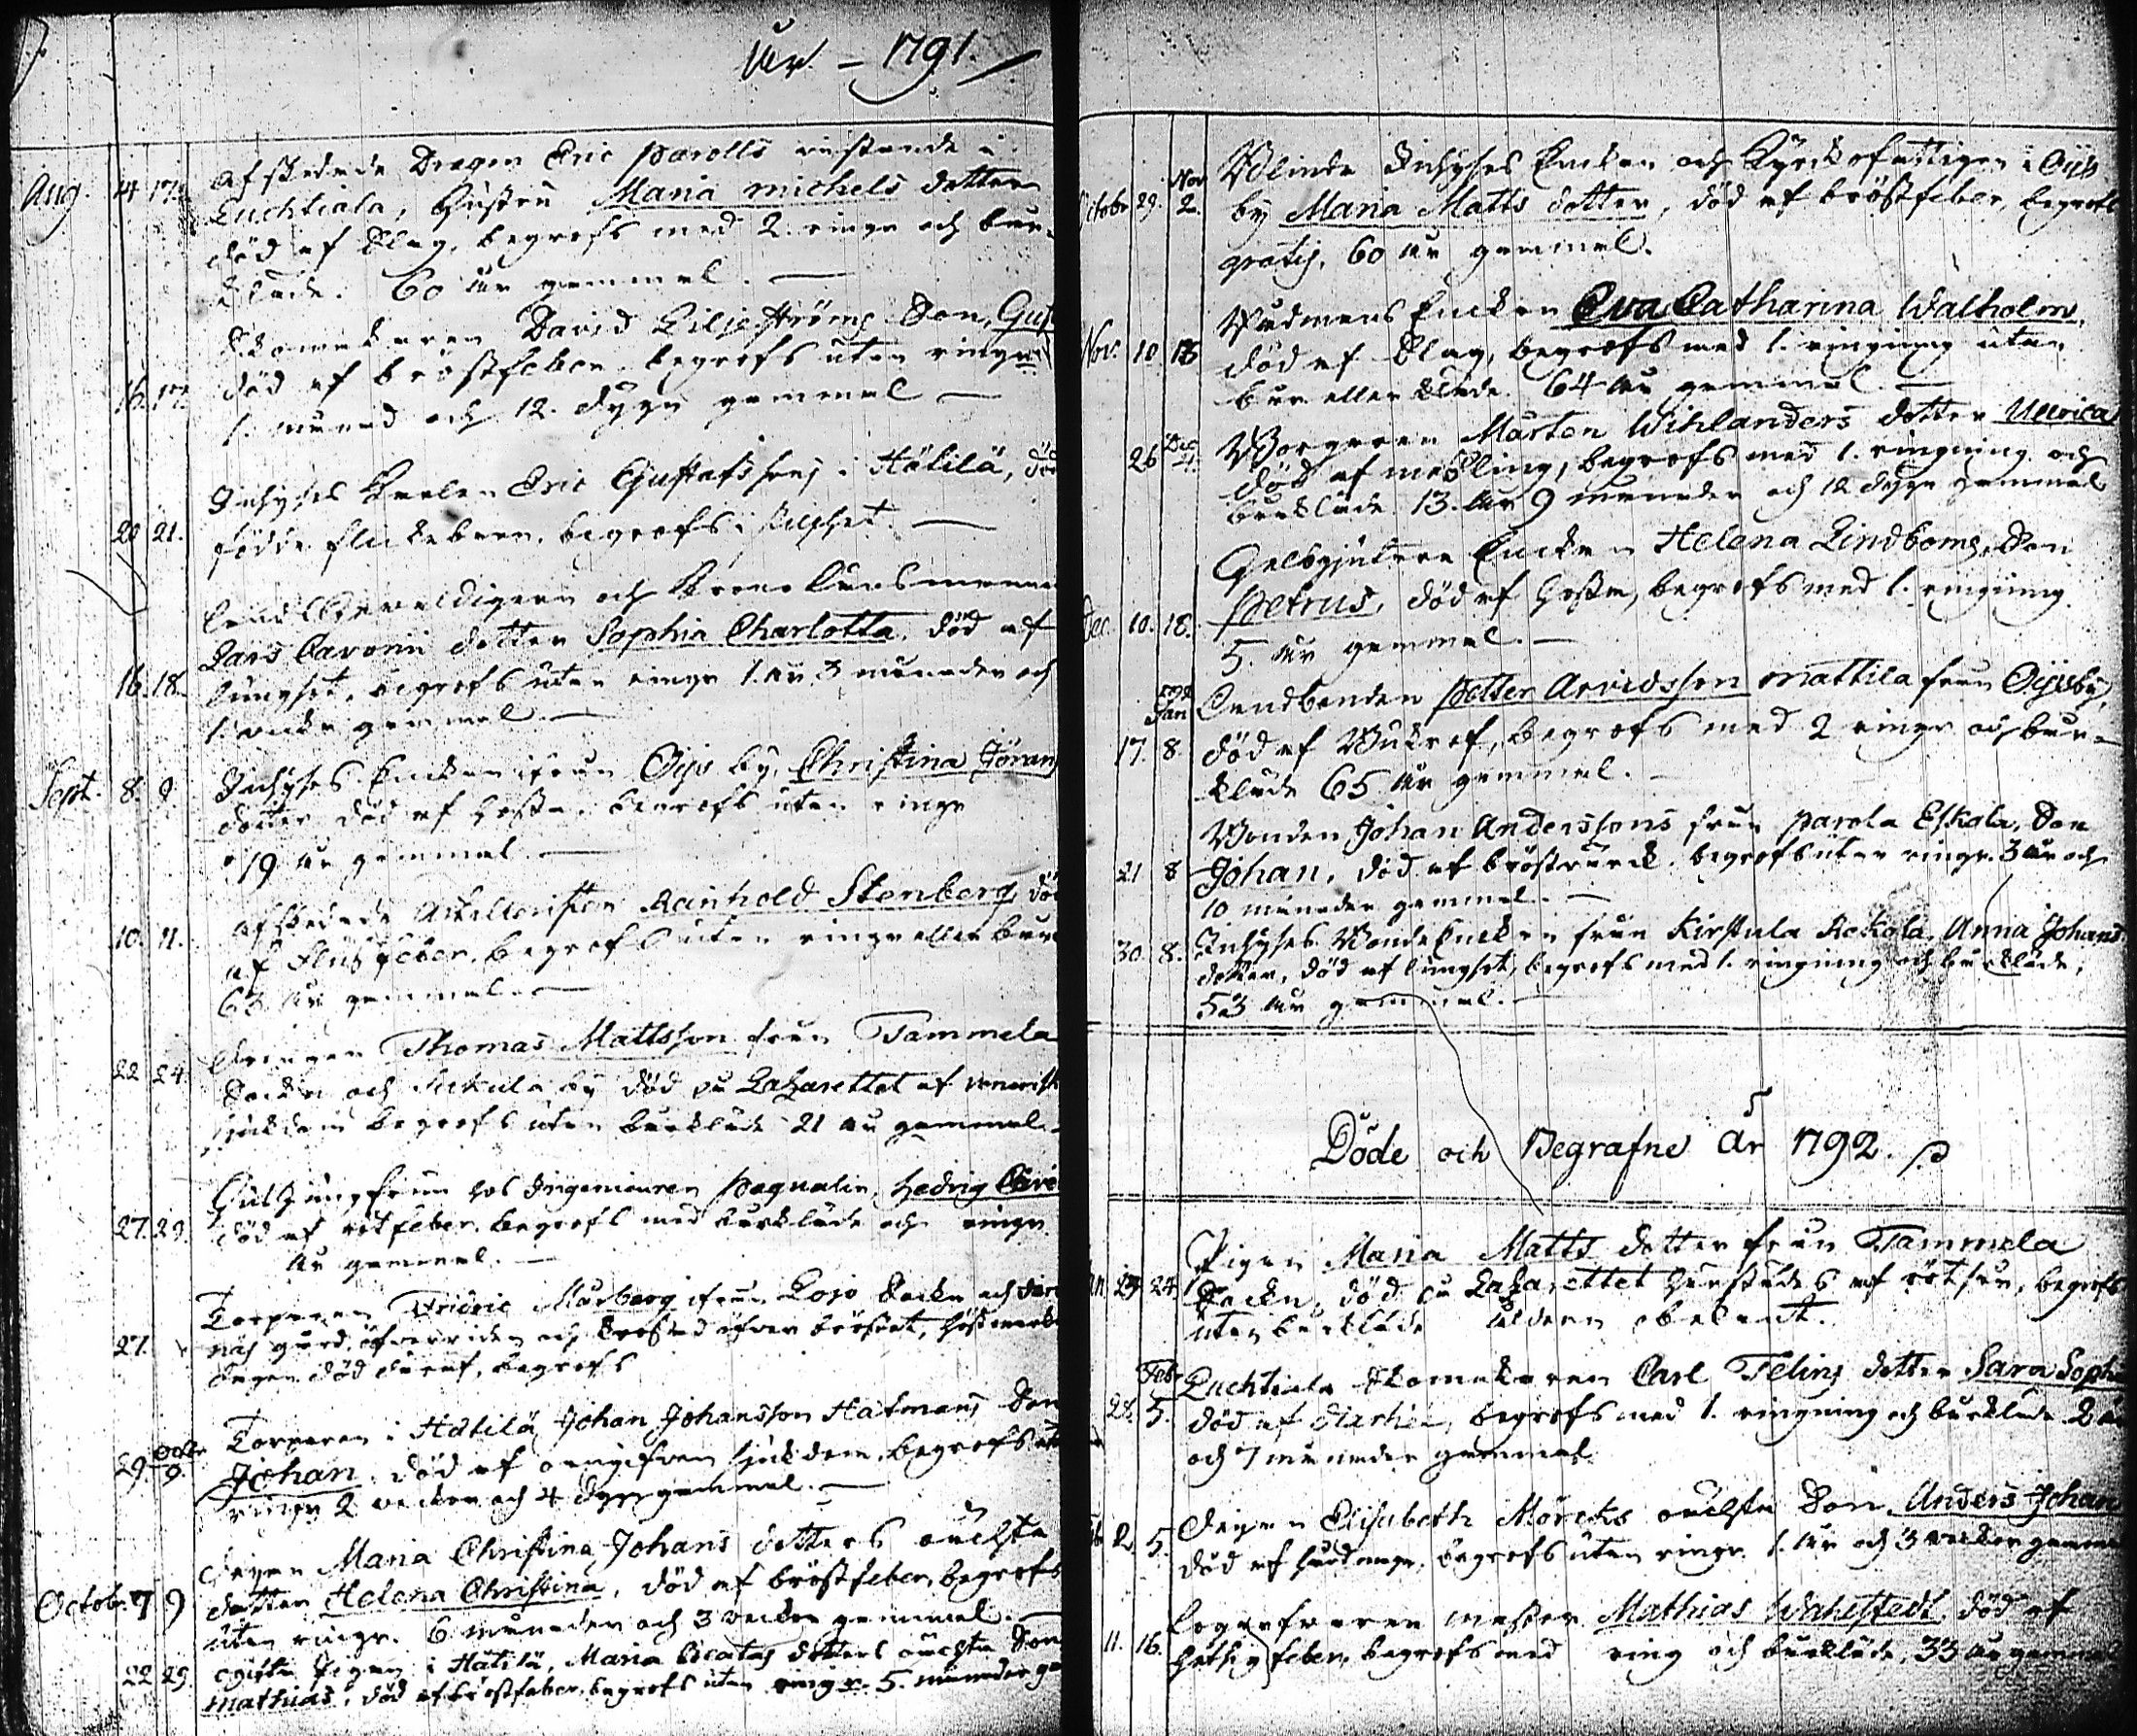 åhr - 1791.
Aug. 14 17. Afskedade Dragon Eric Parolls enstånde i
Luchtiala, Hustru Maria Michels dotter
död af Slag, begrofs med 2. ringn och bår-
kläde. 60 år gammal.
Skomakaren David Liljeströms Son, Gust
16. 17. död af bröstfeber begrofs utan ringn
1. månad och 12. dygn gammal
Inhyses Karlen Eric Gustafssons i Hätilä, död
20 21. födde flickebarn, begrofs i
och Krono Länsmannen
Lars Cavonii dotter Sophia Charlotta, död af
16. 18. lungsot, begrofs utan ringn 1. år 3 månader och
1. vecka gammal
Sept. 8. 9. Inhyses Enckan ifrån Öijs by, Christina Jörans
dotter död af hosta, begrofs utan ringn
79 år gammal.
Afskedade Artilleristen Reinhold Stenberg, död
10. 11. af Flussfeber, begrofs utan ringn eller bår
63 år gammal.
Drengen Thomas Mattsson från Tammela
22 24. Socken och Sukula by död på Lazarettet af venerisk
siukdom begrofs utan bårkläde 21 år gammal.
hos Ingenieuren Paqualin, Hedvig
27. 29. död af rötfeber, begrofs med bårkläde och ringn
år gammal.
Torparen Fridric Mårberg ifrån Lojo Socken och
27. näs gård, öfverriden och krossad öfver bröstet,
dagen död däraf, begrofs
Torparen i Hätilä Johan Johansson Hatmans Son
29. Octbr 9. Johan, död af oangifven siukdom, begrofs utan
ringn 2 veckor och 4 dygn gammal.
Pigan Maria Christina Johans dotters oächta
Octobr. 7 9 dotter Helena Christina, död af bröstfeber, begrofs
utan ringn. 6 månader och 3 veckor gammal.
ogifta Pigan i Hätilä, Maria dotters oächta Son
22 29 Mathias, död af bröstfeber, begrofs utan ringn. 5. månader ga
Blinde Inhyses Enckan och Kyrckofattigen i Öijs
Octobr 29. Nov 2. by Maria Matts dotter, död af bröstfeber, begrofs
gratis, 60 år gammal.
Rådmans Enckan Eva Catharina Walholm,
Nov. 10. 13 död af Slag, begrofs med 1. ringning utan
bår eller kläde. 64 år gammal.
Borgaren Mårten Wihlanders dotter Ullrica
26 Dec 4. död af mässling, begrofs med 1. ringning och
bårkläde 13. år 9 månader och 12 dygn gammal
Gälbgjutare Enckan Helena Lindboms, Son
Dec. 10. 18. Petrus, död af hosta, begrofs med 1. ringning
5. år gammal.
1792 Jan Landbonden Petter Arvidsson Mattila från Öijsby,
17. 8. död af Bukref, begrofs med 2 ringn och bår-
kläde 65 år gammal.
Bonden Johan Anderssons från Parola Eskola, Son
21 8 Johan, död af bröstvärck, begrofs utan ringn. 3 år och
10 månader gammal.
30. 8. Inhyses Bonde Enckan från Kirstula Rekola, Anna Johans
dotter, död af lungsot, begrofs med 1. ringning och bårkläde,
53 år gammal.
Döde och Begrafne År 1792.
Pigan Maria Matts dotter från Tammela
Jan 23 24 Socken, död på Lazarettet härstädes af rötsår, begrofs
utan bårkläde åldern obekant.
Feb. Luchtiala Skomakaren Carl Telins dotter Sara Sophia
28. 5. död af diarhée, begrofs med 1. ringning och bårkläde 2 år
och 7 månader gammal
Pigan Elisabeth Mörcks oächta Son, Anders Johan
Feb 2. 5. död af hårdmage, begrofs utan ringn. 1. år och 3 veckor gammal
Mathias Wahlstedt, död af
11. 16. hetsig feber, begrofs med ring och bårkläde, 33 år gammal